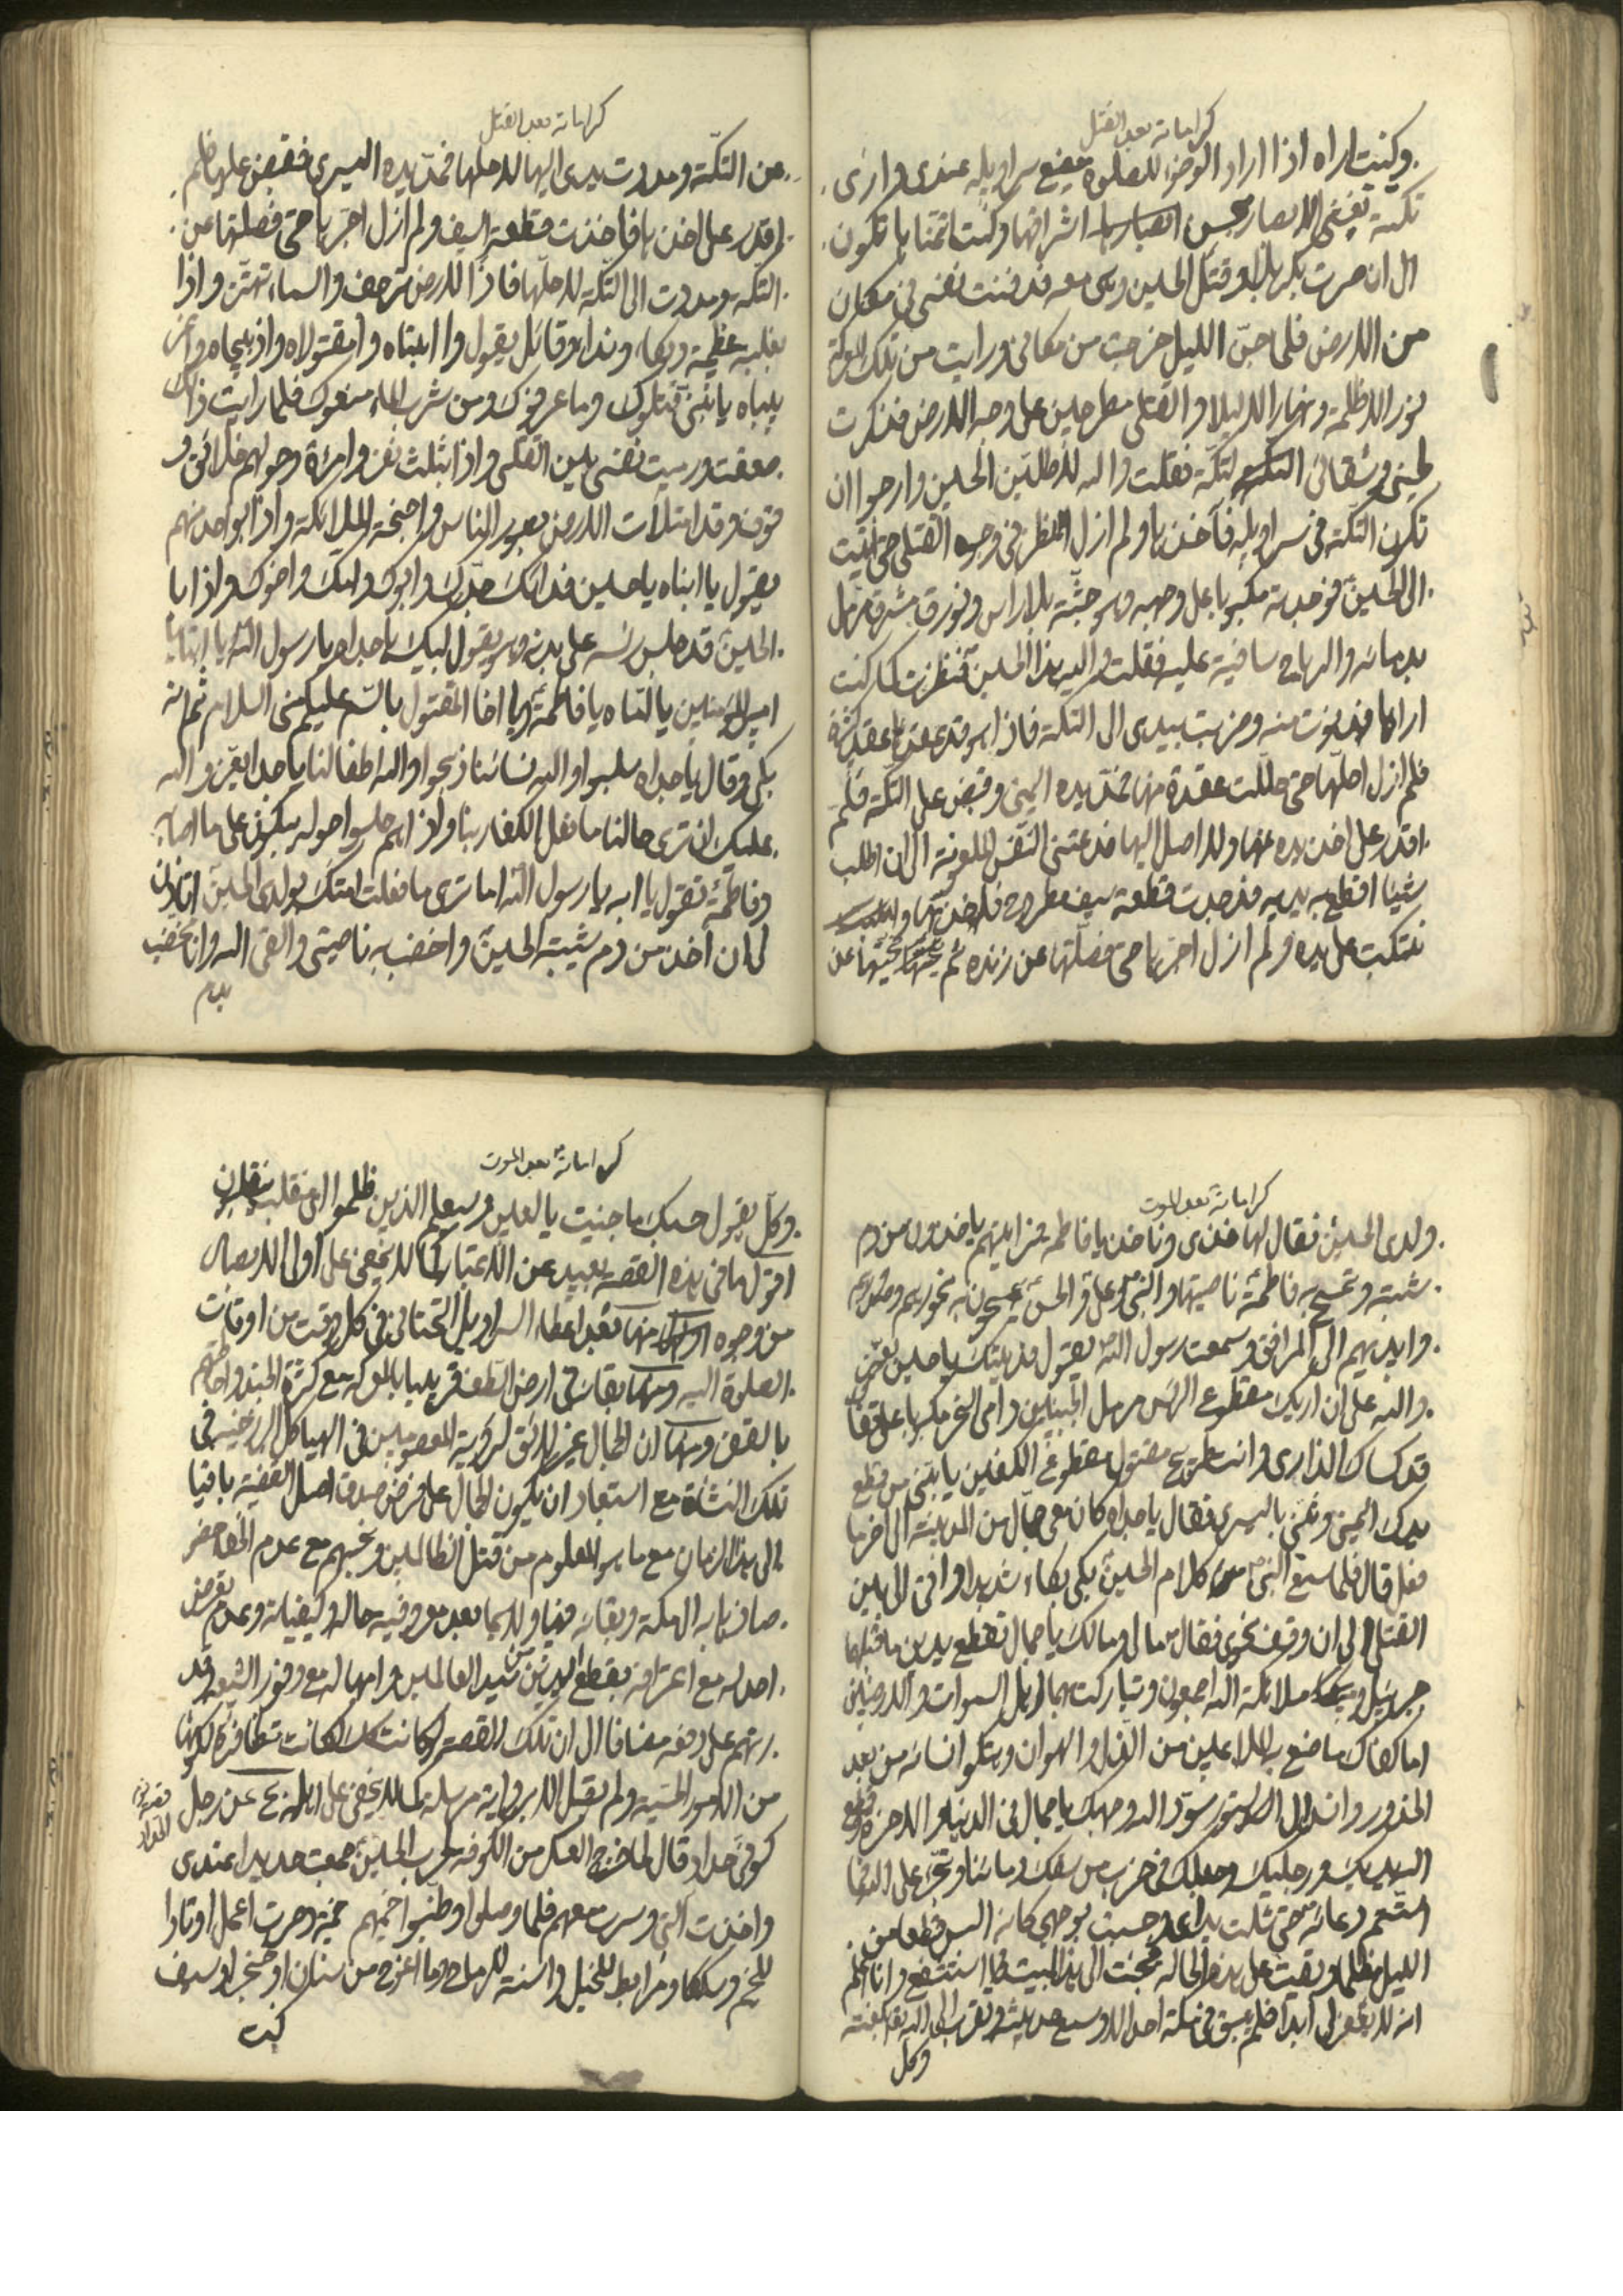 كراماته بعد القتل
وكنت اراه اذا اراد الوضوء للصلوة فيضع سراويله عندى فارى
تكته تغشى الابصار بحسن اشراقها وكنت اتمناها تكون
الى ان صرت بكربلا وقتل الحسين وهى معه فدفنت نفسى فى مكان
من الارض فلما جن الليل خرجت من مكانى ورايت من تلك المعركة
نورا لا ظلمة ونهارا لا ليلا والقتلى مطرحين على وجه الارض فذكرت
لحينى وشقائى التكة فقلت والله لاطلبن الحسين وارجوا ان
تكون التكة فى سراويله فآخذها ولم ازل انظر فى وجوه القتلى حتى اتيت
الى الحسين فوجدته مكبوبا على وجهه وهو جثة بلا راس ونوره مشرق مرمل
بدمائه والرياح سافية عليه فقلت والله هذا الحسين فنظرت كما كنت
اراها فدنوت منه وضربت بيدى الى التكة فاذا هو قد عقدها عقدا كثيرة
فلم ازل احلها حتى حللت عقدة منها فمد يده اليمنى وقبض على التكة فلم
اقدر على اخذ يده عنها ولا اصل اليها فدعتنى النفس الملعونة الى ان اطلب
شيئا اقطع به يديه فوجدت قطعة سيف مطروح فاخذتها و
اتكيت على يده ولم ازل اجزها حتى فصلتها عن زنده ثم نحيتها عن
كراماته بعد القتل
عن التكة ومددت يدى اليها لاحلها فمد يده اليسرى فقبض عليها فلم
اقدر على اخذها فاخذت قطعة السيف ولم ازل اجزها حتى فصلتها عن
التكة ومددت الى التكة لاحلها فاذا الارض ترجف والسماء تهتز واذا
بغلبة عظيمة وبكاء ونداء وقائل يقول وا ابناه وا مقتولاه وا ذبيحاه وا
يا بنى قتلوك وما عرفوك ومن شرب الماء منعوك فلما رايت ذلك
صعقت ورميت نفسى بين القتلى واذا بثلث نفر وامرأة وحولهم خلائق
وقوف وقد امتلأت الارض بصور الناس واجنحة الملائكة واذا بواحد منهم
يقول يا ابناه يا حسين فداك جدك وابوك وامك واخوك واذا با
الحسين قد جلس ورأسه على بدنه وهو يقول لبيك يا جداه يا رسول الله يا ابتاه يا
امير المؤمنين يا اماه يا فاطمة ويا اخا المقتول بالسم عليكم منى السلام ثم انه
بكى وقال يا جداه سلبوا والله نسائنا ذبحوا والله اطفالنا يا جداه يعز والله
عليك ان ترى حالنا ما فعل الكفار بنا واذا هم جلسوا حوله يبكون على ما اصابه
وفاطمة تقول يا ابه يا رسول الله اما ترى ما فعلت امتك بولدى الحسين اتاذن
لى ان آخذ من دم شيبه الحسين واخضب به ناصيتى والقى الله وانا مختضبة
بدم
كراماته بعد الموت
ولدى الحسين فقال لها خذى وناخذ يا فاطمه فرايتهم ياخذون من دم
شيبه وتمسح به فاطمة ناصيتها والنبى وعلى والحسن يمسحون به نحورهم وصدورهم
وايديهم الى المرافق وسمعت رسول الله يقول فديتك يا حسين يعز
والله على ان اريك مقطوع الراس مرمل الجبينين دامى النحر مكبوبا على قفا
قد كساك الذارى وانت طريح مقتول مقطوع الكفين يا بنى من قطع
يدك اليمنى وثنى باليسرى فقال يا جداه كان معى جمال من المدينة الى آخر ما
فعل قال فلما سمع النبى كلام الحسين بكى بكاء شديدا واتى الى بين
القتلى الى ان وقف نحوى فقال ما لى ومالك يا جمال تقطع يدين ما قبلهما
جبرئيل و ملائكة الله اجمعون وتباركت بها اهل السموات والارضين
اما كفاك ما صنع به الملاعين من الذل والهوان وهتكوا نسائه من بعد
الخدور وانسدال الستور سود الله وجهك يا جمال فى الدنيا والاخرة وقطع
الله يديك ورجليك وجعلك فى حزب من سفك دمائنا وتجرء على الله فما
استتم دعائه حتى شلت يداى وحسست بوجهى كانه البس قطعا من
الليل مظلما وبقيت على هذه الحالة فجئت الى هذا البيت استشفع وانا اعلم
انه لا يغفر لى ابدا فلم يبق فى مكة احد الا وسمع حديثه وتقرب الى الله بلعنته
وكل
كراماته بعد الموت
وكل يقول حسبك ما جنيت يا لعين وسيعلم الذين ظلموا اى منقلب ينقلبون
اقول ما فى هذه القصه بعيد عن الاعتبار كما لا يخفى على اولى الابصار
من وجوه منها بعد اعطاء السراويل التحتانى فى كل وقت من اوقات
الصلوة اليه ومنها بقائه فى ارض الطف قريبا بالمعركه مع كثرة الجند واحاطتهم
بالقفر ومنها ان الجمال غير لائق لرؤية المعصومين فى الهياكل البرزخيه فى
تلك النشاة مع استبعاد ان يكون الجمال على فرض صدق اصل القضية باقيا
الى هذا الزمان مع ما هو المعلوم من قتل الظالمين ونحبهم مع عدم
ذهابه الى مكة وبقائه فيها ولا سيما بعد معروفية حاله وكيفياته وعدم تعرض
احد له مع اعترافه بقطع اليدين من سيد العالمين وامهاله مع وفور الشيعه و
قدرتهم على دفعه مضافا الى ان تلك القصة لو كانت لكانت متظافرة لكونها
من الامور الحسية ولم ينقل الا برواية مرسلة كما لا يخفى على اهله عن رجل
كوفى حداد قال لما خرج العسكر من الكوفه لحرب الحسين جمعت حديدا عندى
واخذت آلتى وسرت معهم فلما وصلوا وطنبوا خيمهم خيمة وصرت اعمل اوتادا
للخيم وسككا ومرابط للخيل واسنة للرماح وما اعوج من سنان او خنجر او سيف
كنت